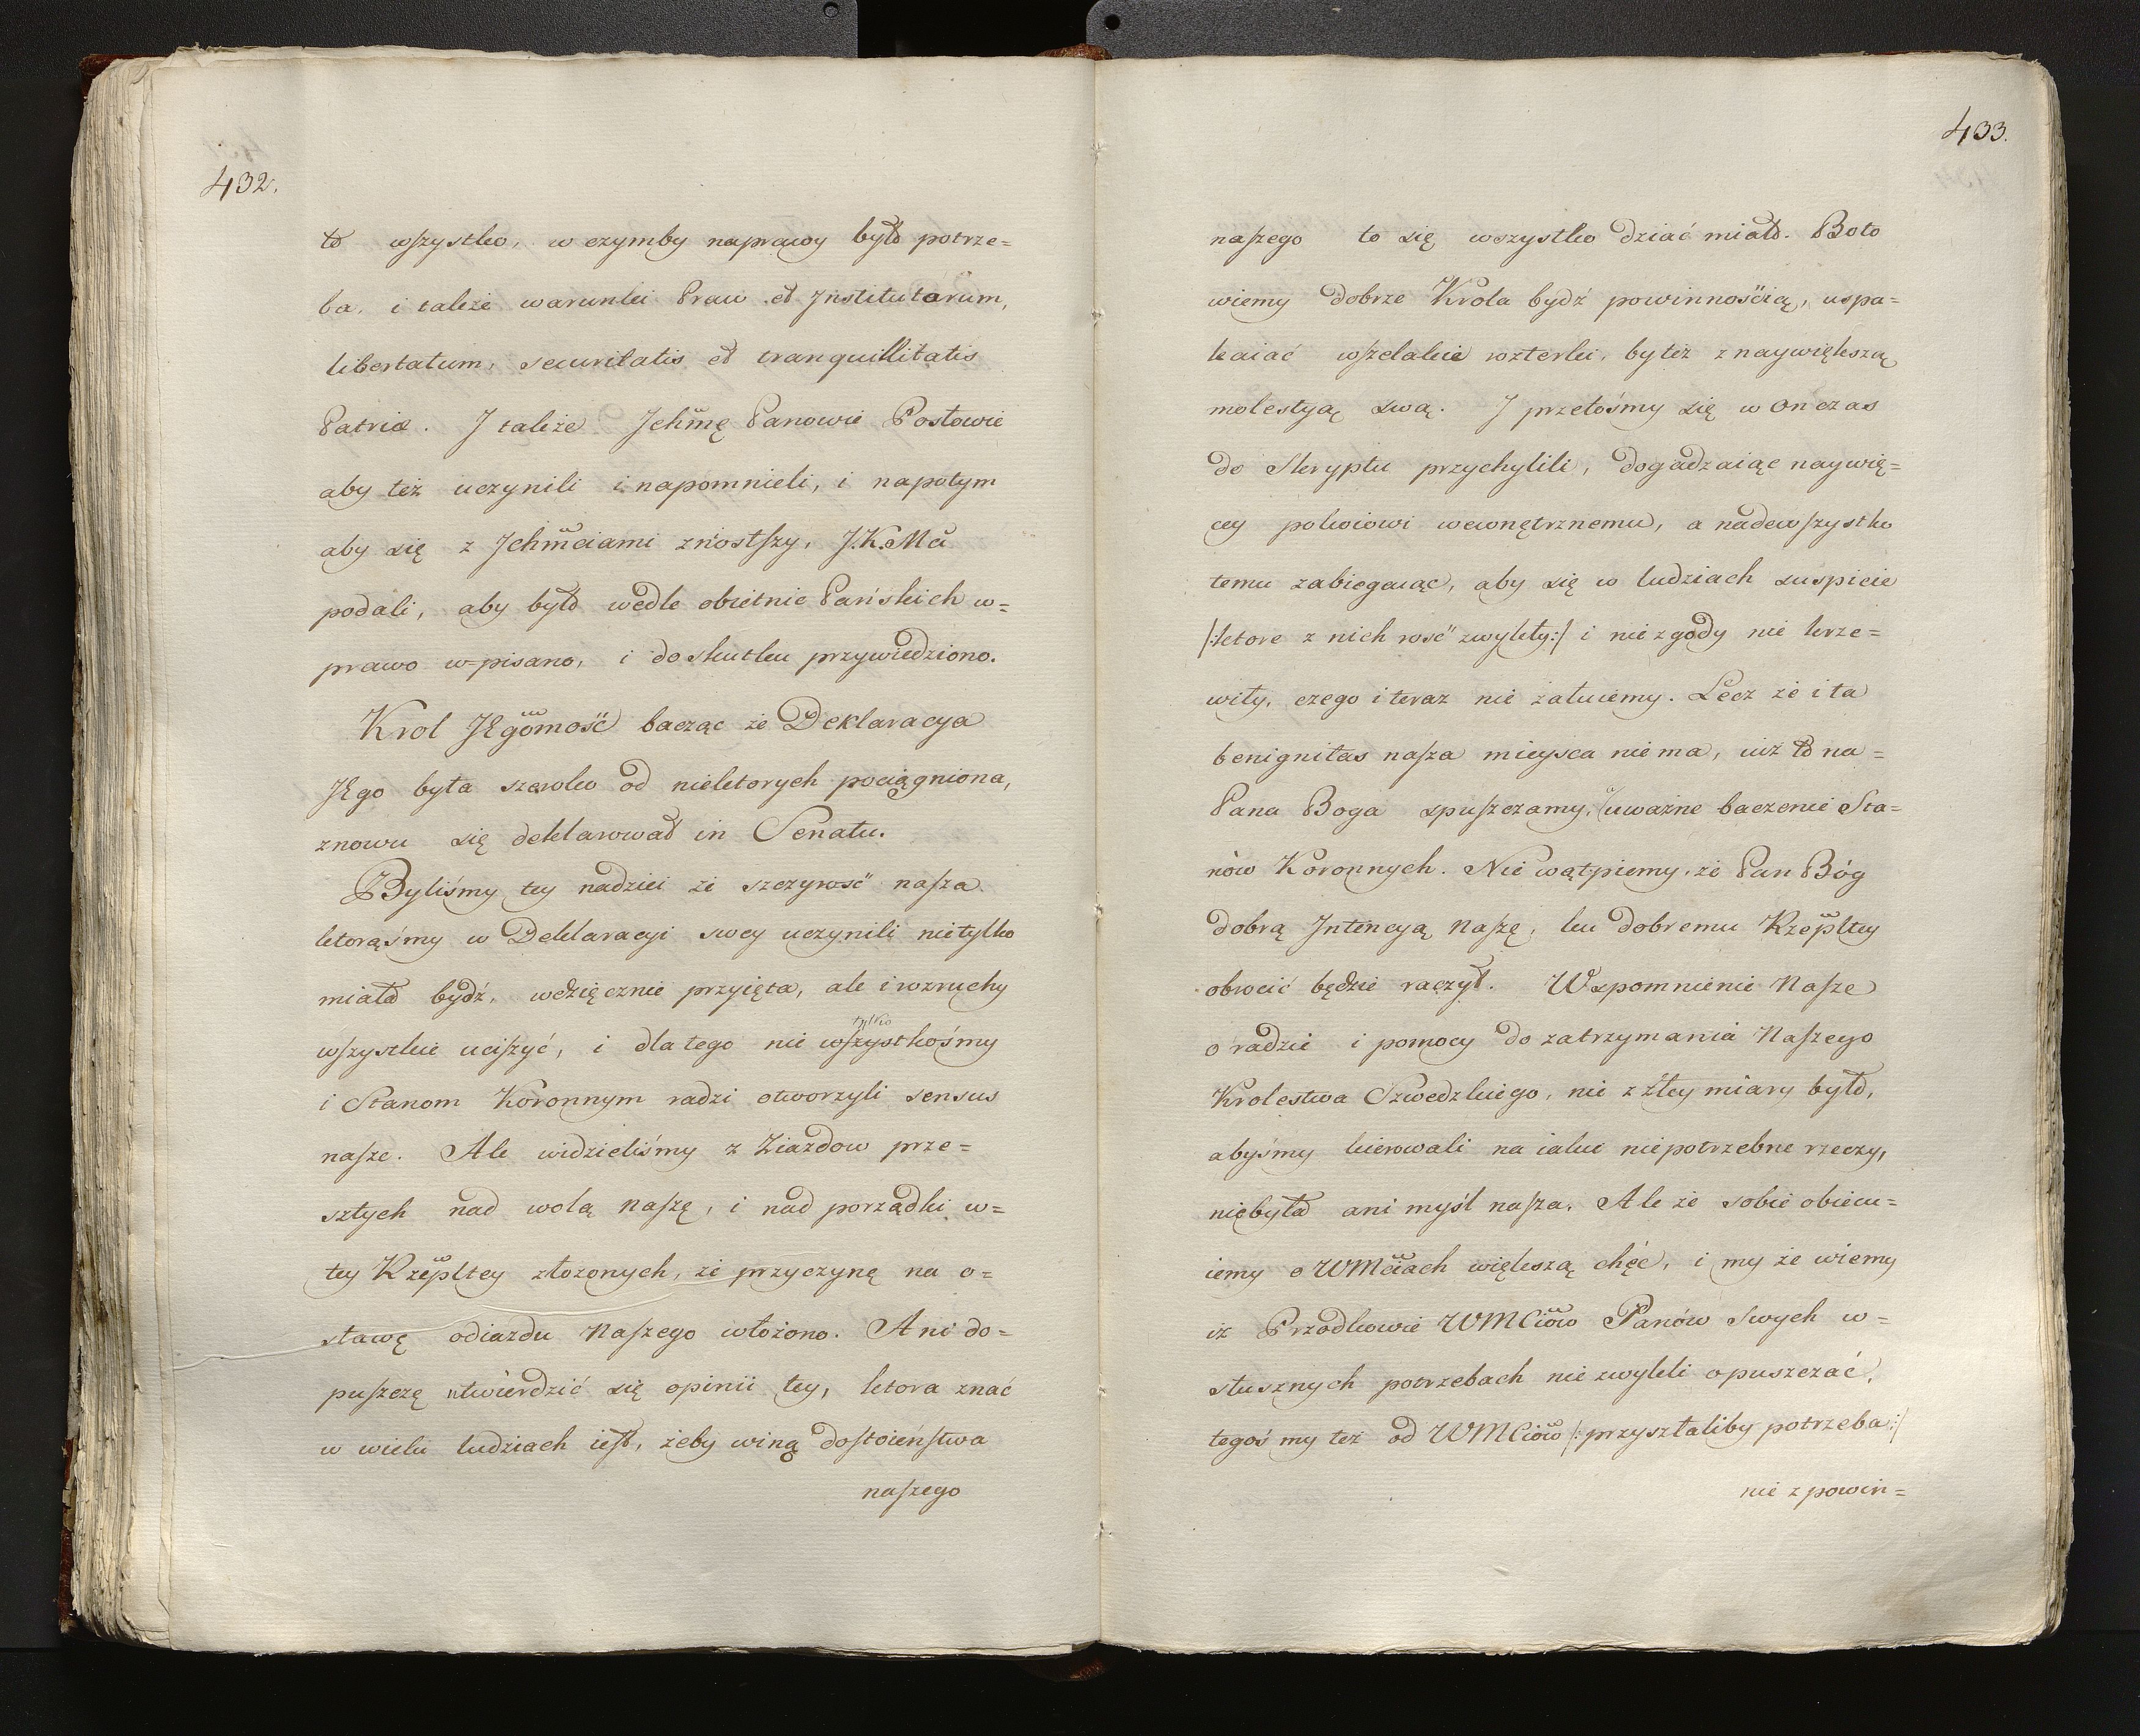 432.
to wszystko, w czymby naprawy było potrze=
ba, i także warunki Praw et Institutorum,
libertatum, securitatis et tranquillitatis
Patriæ. I także Ichmę Panowie Posłowie
aby też uczynili i napomnieli, i napotym
aby się z Ichmciami zniosłszy, J.K.Mci
podali, aby było wedle obietnic Pańskich w=
prawo w=pisano, i do skutku przywiedziono.
Krol JEgomość bacząc że Deklaracya
JEgo była szeroko od niektorych pociągniona,
znowu się deklarował in Senatu.
Byliśmy tey nadziei że szczyrość nasza
ktorąśmy w Deklaracyi swey uczynili nietylko
miała bydź, wdzięcznie przyięta, ale i rozruchy
wszystkie uciszyć, i dla tego nie wszystkośmy
tylko
i Stanom Koronnym radzi otworzyli sensus
nasze. Ale widzieliśmy z Ziazdow prze=
szłych nad wolą naszę, i nad porządki w=
tey Rzepltey złożonych, że przyczynę na o=
stawę odiazdu Naszego włożono. Ani do=
puszczę utwierdzić się opinii tey, ktora znać
w wielu ludziach iest, żeby winą dostoieństwa
naszego
433.
naszego to się wszystko dziać miało. Boto
wiemy dobrze Krola bydź powinnością, uspa=
kaiać wszelakie rozterki, by też z naywiększą
molestyą swą. I przetośmy się w on czas
do Skryptu przychylili, dogadzaiąc naywię=
cey pokoiowi wewnętrznemu, a nadewszystko
temu zabiegaiąc, aby się w ludziach suspicie
/:ktore z nich rość zwykły:/ i niezgody nie krze=
wiły, czego i teraz nie żałuiemy. Lecz że i ta
benignitas nasza mieysca niema, iuż to na=
Pana Boga spuszczamy, i uważne baczenie Sta=
nòw Koronnych. Nie wątpiemy, że Pan Bóg
dobrą Intencyą Naszę, ku dobremu Rzepltey
obrocić będzie raczył. Wspomnienie Nasze
o radzie i pomocy do zatrzymania Naszego
Krolestwa Szwedzkiego, nie z złey miary było,
abyśmy kierowali na iakie niepotrzebne rzeczy,
niebyła ani myśl nasza. Ale że sobie obiecu=
iemy o WMciach większą chęć, i my że wiemy
iż Przodkowie WMCiow Panów Swych w=
słusznych potrzebach nie zwykli opuszczać,
tegośmy też od WMCiow /:przyszłaliby potrzeba:/
nie z powin=